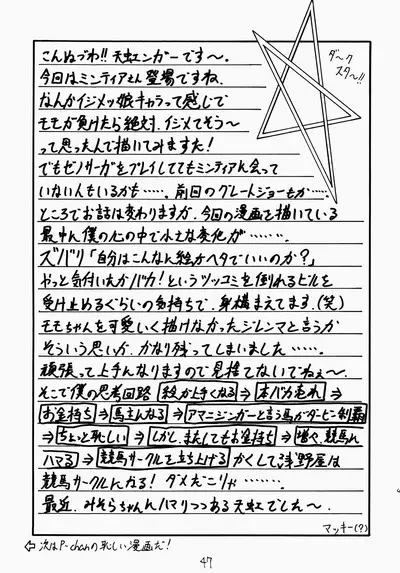 こんぬづわ!! 天虹ンガーです〜。
今回はミンティアさん登場ですね。
なんかイジメッ娘キャラって感じで
モモが負けたら絶対、イジメてそう〜
って思ったんで描いてみますた!
でもゼノサーガをプレイしててもミンティアに会って
いない人もいるかも……。前回のグレートジョーもか……。
ところでお話は変わりますが、今回の漫画を描いている
最中に僕の心の中で小さな変化が………。
ズバリ「自分はこんなに絵がヘタでいいのか?」
やっと気付いたかバカ!というツッコミを倒れるビルを
受け止めるぐらいの気持ちで、身構えてます。(笑)
モモちゃんを可愛いく描けなかったジレンマと言うか
そういう思いが、かなり残ってしまいました……。
頑張って上手くなりますので見捨てないでねぇ〜。
そこで僕の思考回路 絵が上手くなる⇒本バカ売れ⇒
お金持ち⇒馬主になる⇒アマニジンガーと言う馬がダービー制覇
⇒ちょっと恥しい⇒しかし、またしてもお金持ち⇒増々、競馬に
ハマる⇒競馬サークルを立ち上げる かくして浅野屋は
競馬サークルになる! ダメだこりゃ……。
最近、みそらちゃんにハマりつつある天虹でした〜。
ダ〜ク
スタ〜!!
マッキー(?)
⇦ 次はP-chanの恥しい漫画だ!
47